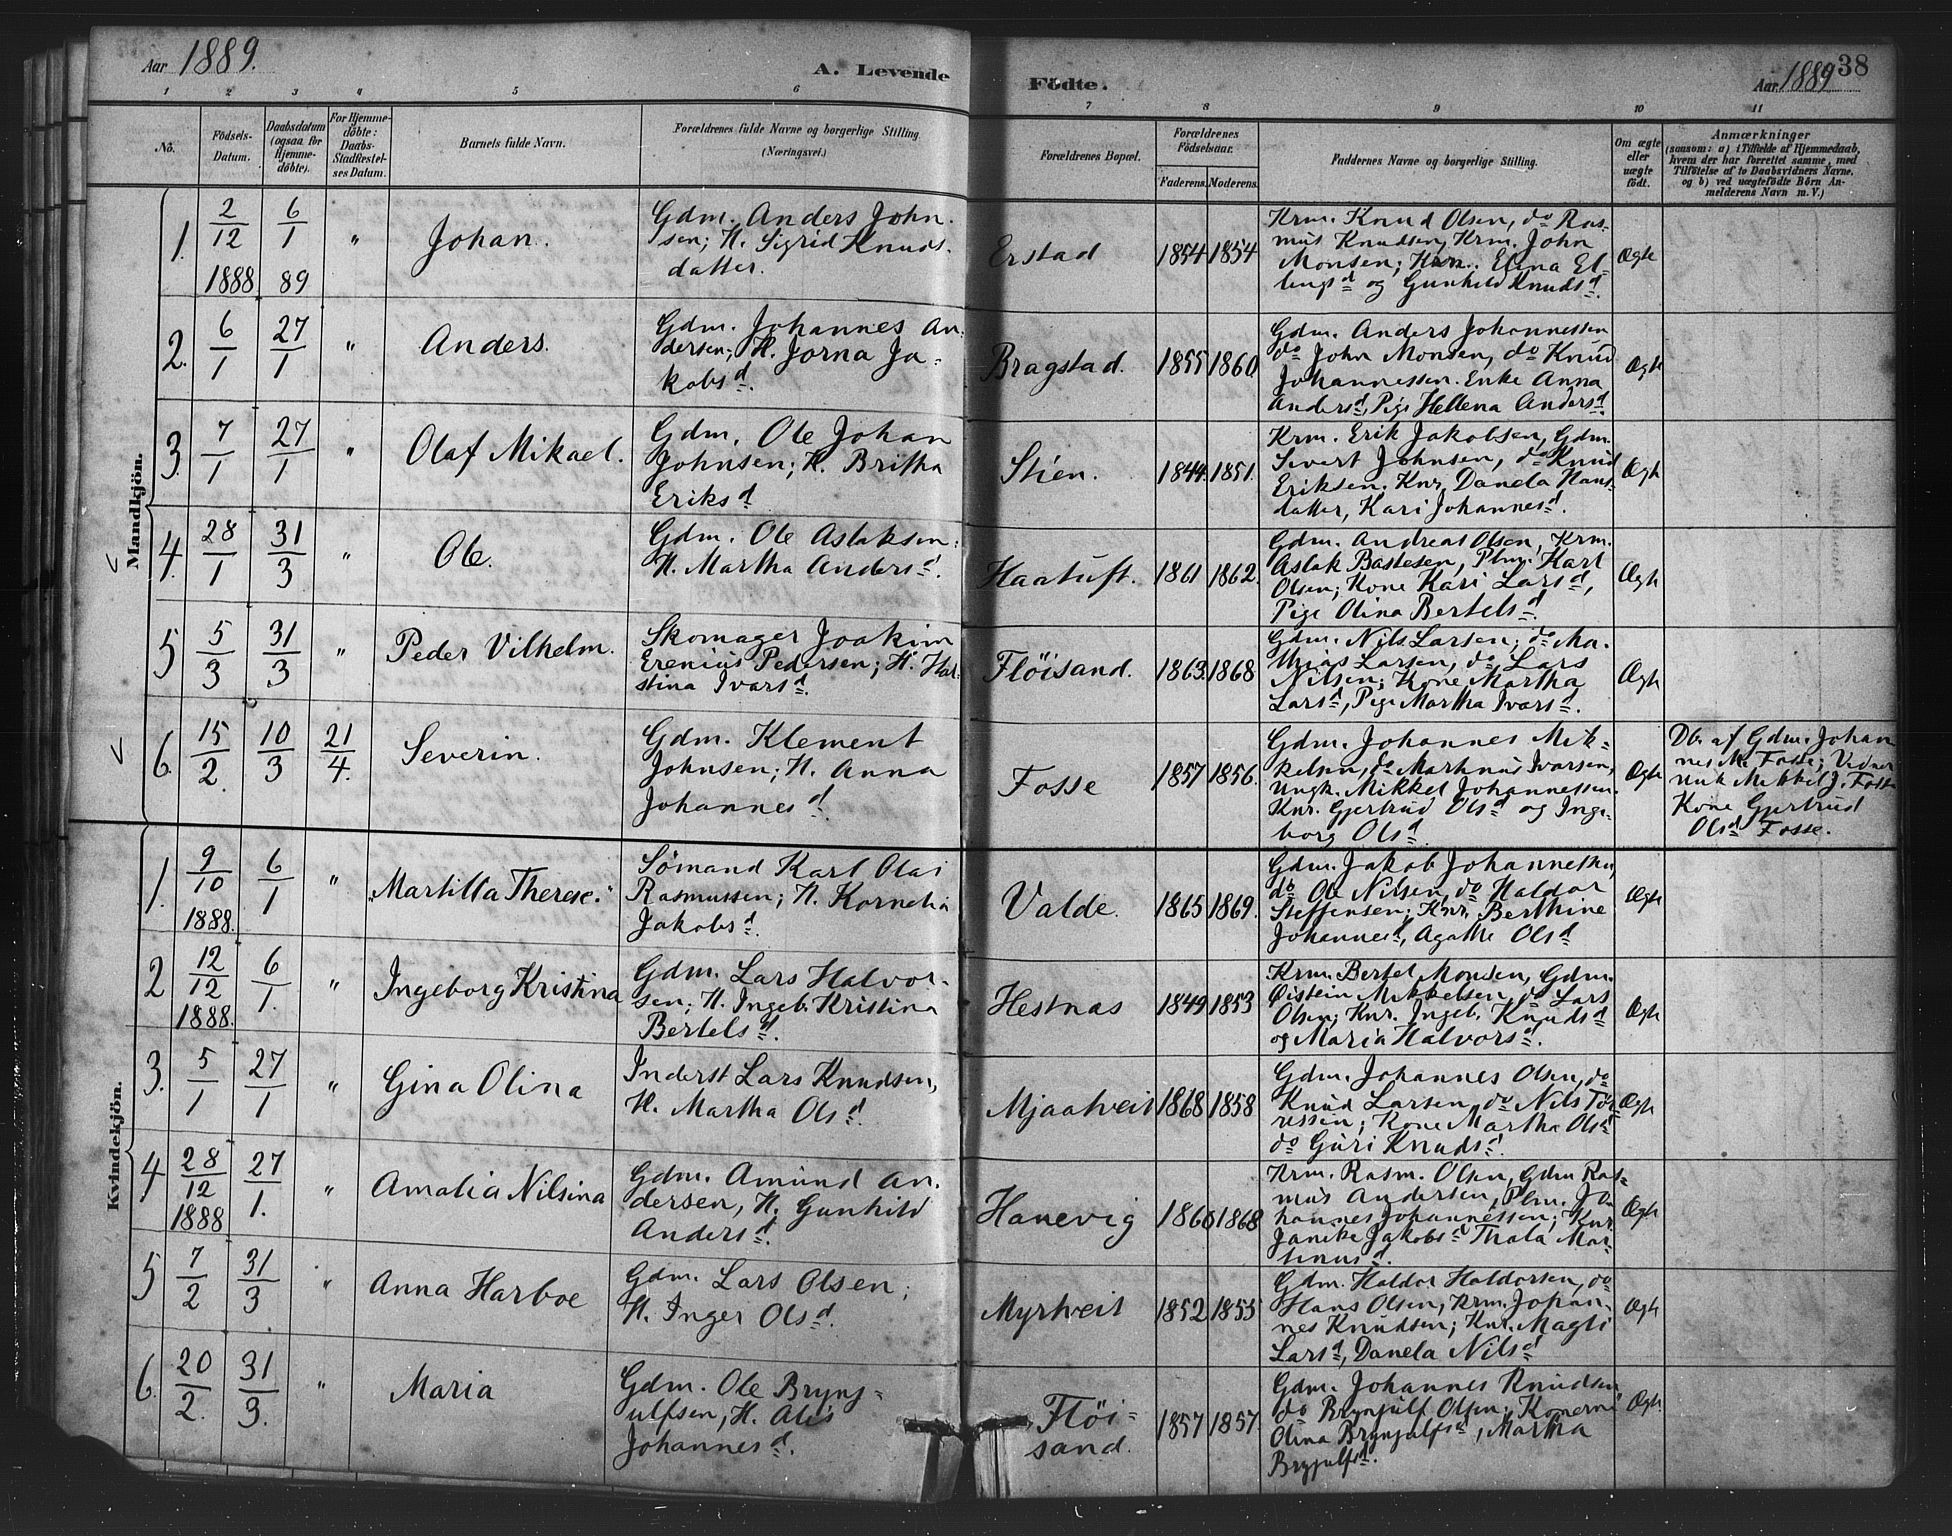 Aar 1889.
A. Levende
Födte.
Aar 1889
38
1 2 3 4 5 6
7 8 9 10 11
No.
Födsels-
Datum.
Daabsdatum
(ogsaa for
Hjemme-
döbte).
For Hjemme-
döbte:
Daabs-
Stadfæstel-
ses Datum.
Barnets fulde Navn.
Forældrenes fulde Navne og borgerlige Stilling
(Næringsvei.)
Forældrenes Bopæl.
Forældrenes
Födselsaar.
Faderens. Moderens.
Faddernes Navne og borgerlige Stilling.
Om ægte
eller
uægte
födt.
Anmærkninger
(saasom: a) i Tilfælde af Hjemmedaab,
hvem der har forrettet samme, med
Tilföielse af to Daabsvidners Navne,
og b) ved uægtefödte Börn An-
melderens Navn m. V.)
Mandkjön.
1. 2/12 1888 6/1 89 "
Johan.
Gdm. Anders John-
sen; H. Sigrid Knuds-
datter.
Erstad 1854 1854
Krm. Knud Olsen, do Ras-
mus Knudsen, Krm. John
Monsen; Knr. Elina El-
lingsd og Gunhild Knudsd.
Ægte
2. 6/1 27/1 "
Anders.
Gdm. Johannes An-
dersen; H. Jorna Ja-
kobsd.
Bragstad. 1855 1860
Gdm. Anders Johannessen
do John Monsen, do Knud
Johannessen. Enke Anna
Andersd, Pige Hellena Andersd.
Ægte
3. 7/1 27/1 "
Olaf Mikael.
Gdm. Ole Johan
Johnsen; H. Britha
Eriksd
Stien. 1844. 1851.
Krm. Erik Jakobsen, Gdm.
Sivert Johnsen, do Knud
Eriksen. Knr. Danela Hans-
datter, Kari Johannesd.
Ægte
4. 28/1 31/3 "
Ole.
Gdm. Ole Aslaksen;
H. Martha Andersd.
Haatuft. 1861 1862.
Gdm. Andreas Olsen, Krm.
Aslak Bastesen, Plm. Karl
Olsen; Kone Kari Larsd,
Pige Olina Bertelsd.
Ægte
5 5/3 31/3 "
Peder Vilhelm.
Skomager Joakim
Erenius Pedersen; H. Har-
stina Ivarsd.
Flöisand. 1863. 1868
Gdm. Nils Larsen; do Ma-
thias Larsen, do Lars
Nilsen; Kone Martha
Larsd, Pige Martha Ivarsd.
Ægte
6. 15/2. 10/3 21/4.
Severin.
Gdm. Klement
Johnsen; H. Anna
Johannesd.
Fosse 1857 1856.
Gdm. Johannes Mik-
kelsen, do Marknus Ivarsen,
Ungk. Mikkel Johannessen.
Knr. Gjertrud Olsd og Inge-
borg Olsd.
Ægte
Db. af Gdm. Johan
nes M. Fosse; Vidner
Unk Mikkel J. Fosse
Kone Gjertrud
Olsd Fosse.
Kvindekjön.
1. 9/10 1888. 6/1 "
"Martilla Therese."
Sømand Karl Olai
Rasmussen; H. Kornelia
Jakobsd.
Valde. 1865 1869.
Gdm. Jakob Johannessen,
do Ole Nilsen, do Haldor
Steffensen; Knr. Berthine
Johannesd, Agathe Olsd
Ægte
2 12/12 1888. 6/1. "
Ingeborg Kristina
Gdm. Lars Halvor-
sen; H. Ingeb. Kristina
Bertelsd.
Hestnas 1849 1853
Krm. Bertel Monsen, Gdm.
Øistein Mikkelsen, do Lars
Olsen; Knr. Ingeb. Knudsd
og Maria Halvorsd.
Ægte
3. 5/1 27/1 "
Gina Olina
Inderst Lars Knudsen,
H. Martha Olsd.
Mjaatveit 1868 1858
Gdm. Johannes Olsen, do
Knud Larsen, do Nils Tor-
ussen; Kone Martha Olsd
do Guri Knudsd.
Ægte
4 28/12 1888 27/1. "
Amalia Nilsina
Gdm. Amund An-
dersen, H. Gunhild
Andersd.
Hanevig 1866 1868
Krm. Rasm. Olsen, Gdm Ras-
mus Andersen, Plm. Jo-
hannes Johannessen; Knr.
Janike Jakobsd Thala Mar-
tinusd.
Ægte
5 7/2 31/3 "
Anna Harboe
Gdm. Lars Olsen;
H. Inger Olsd.
Myrtveit 1852 1855
Gdm. Haldor Haldorsen, do
Hans Olsen, Krm. Johan-
nes Knudsen; Knr. Magli
Larsd, Danela Nilsd
Ægte
6. 20/2. 31/3. "
Maria
Gdm. Ole Brynj-
ulfsen, H. Alis
Johannesd.
Flöi-
sand. 1857 1857.
Gdm. Johannes Knudsen
do Brynjulf Olsen; Konerne
Olina Brynjulfsd, Martha
Brynjulfsd.
Ægte